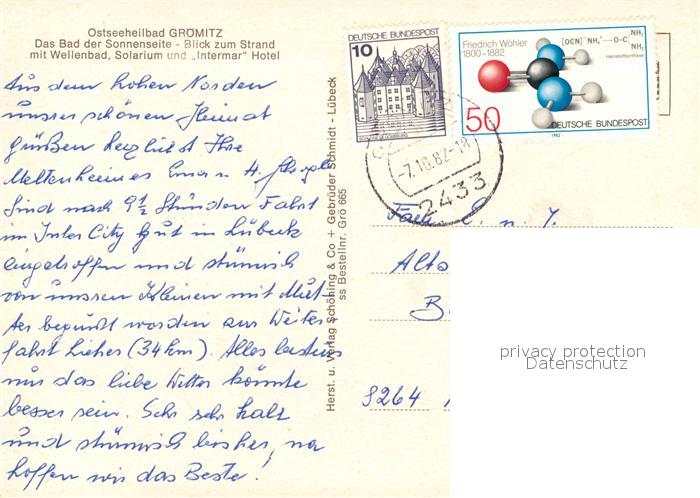 Ostseeheilbad GRÖMITZ
Das Bad der Sonnenseite - Blick zum Strand
mit Wellenbad, Solarium und „Intermar" Hotel
Aus dem hohen Norden
unsrer schönen Heimat
grüßen herzlichst Ihre
Meltenheimer Erna u. H.
Sind nach 9½ Stunden Fahrt
im Inter City gut in Lübeck
eingetroffen und stürmisch
von unsren Kleinen mit Mut-
ter begrüßt worden zur Weiter-
fahrt hierher (34 km). Alles bestens
nur das liebe Wetter könnte
besser sein. Sehr sehr kalt
und stürmisch bisher, na
hoffen wir das Beste!
Herst. u. Verlag Schöning & Co + Gebrüder Schmidt - Lübeck
ss Bestellnr. Grö 665
DEUTSCHE BUNDESPOST
10
Friedrich Wöhler
1800-1882
[OCN]⁻ NH₄⁺ → O=C
NH₂
NH₂
Harnstoffsynthese
50
DEUTSCHE BUNDESPOST
1982
-7.10.82-18
2433
Fam.
8264
privacy protection
Datenschutz